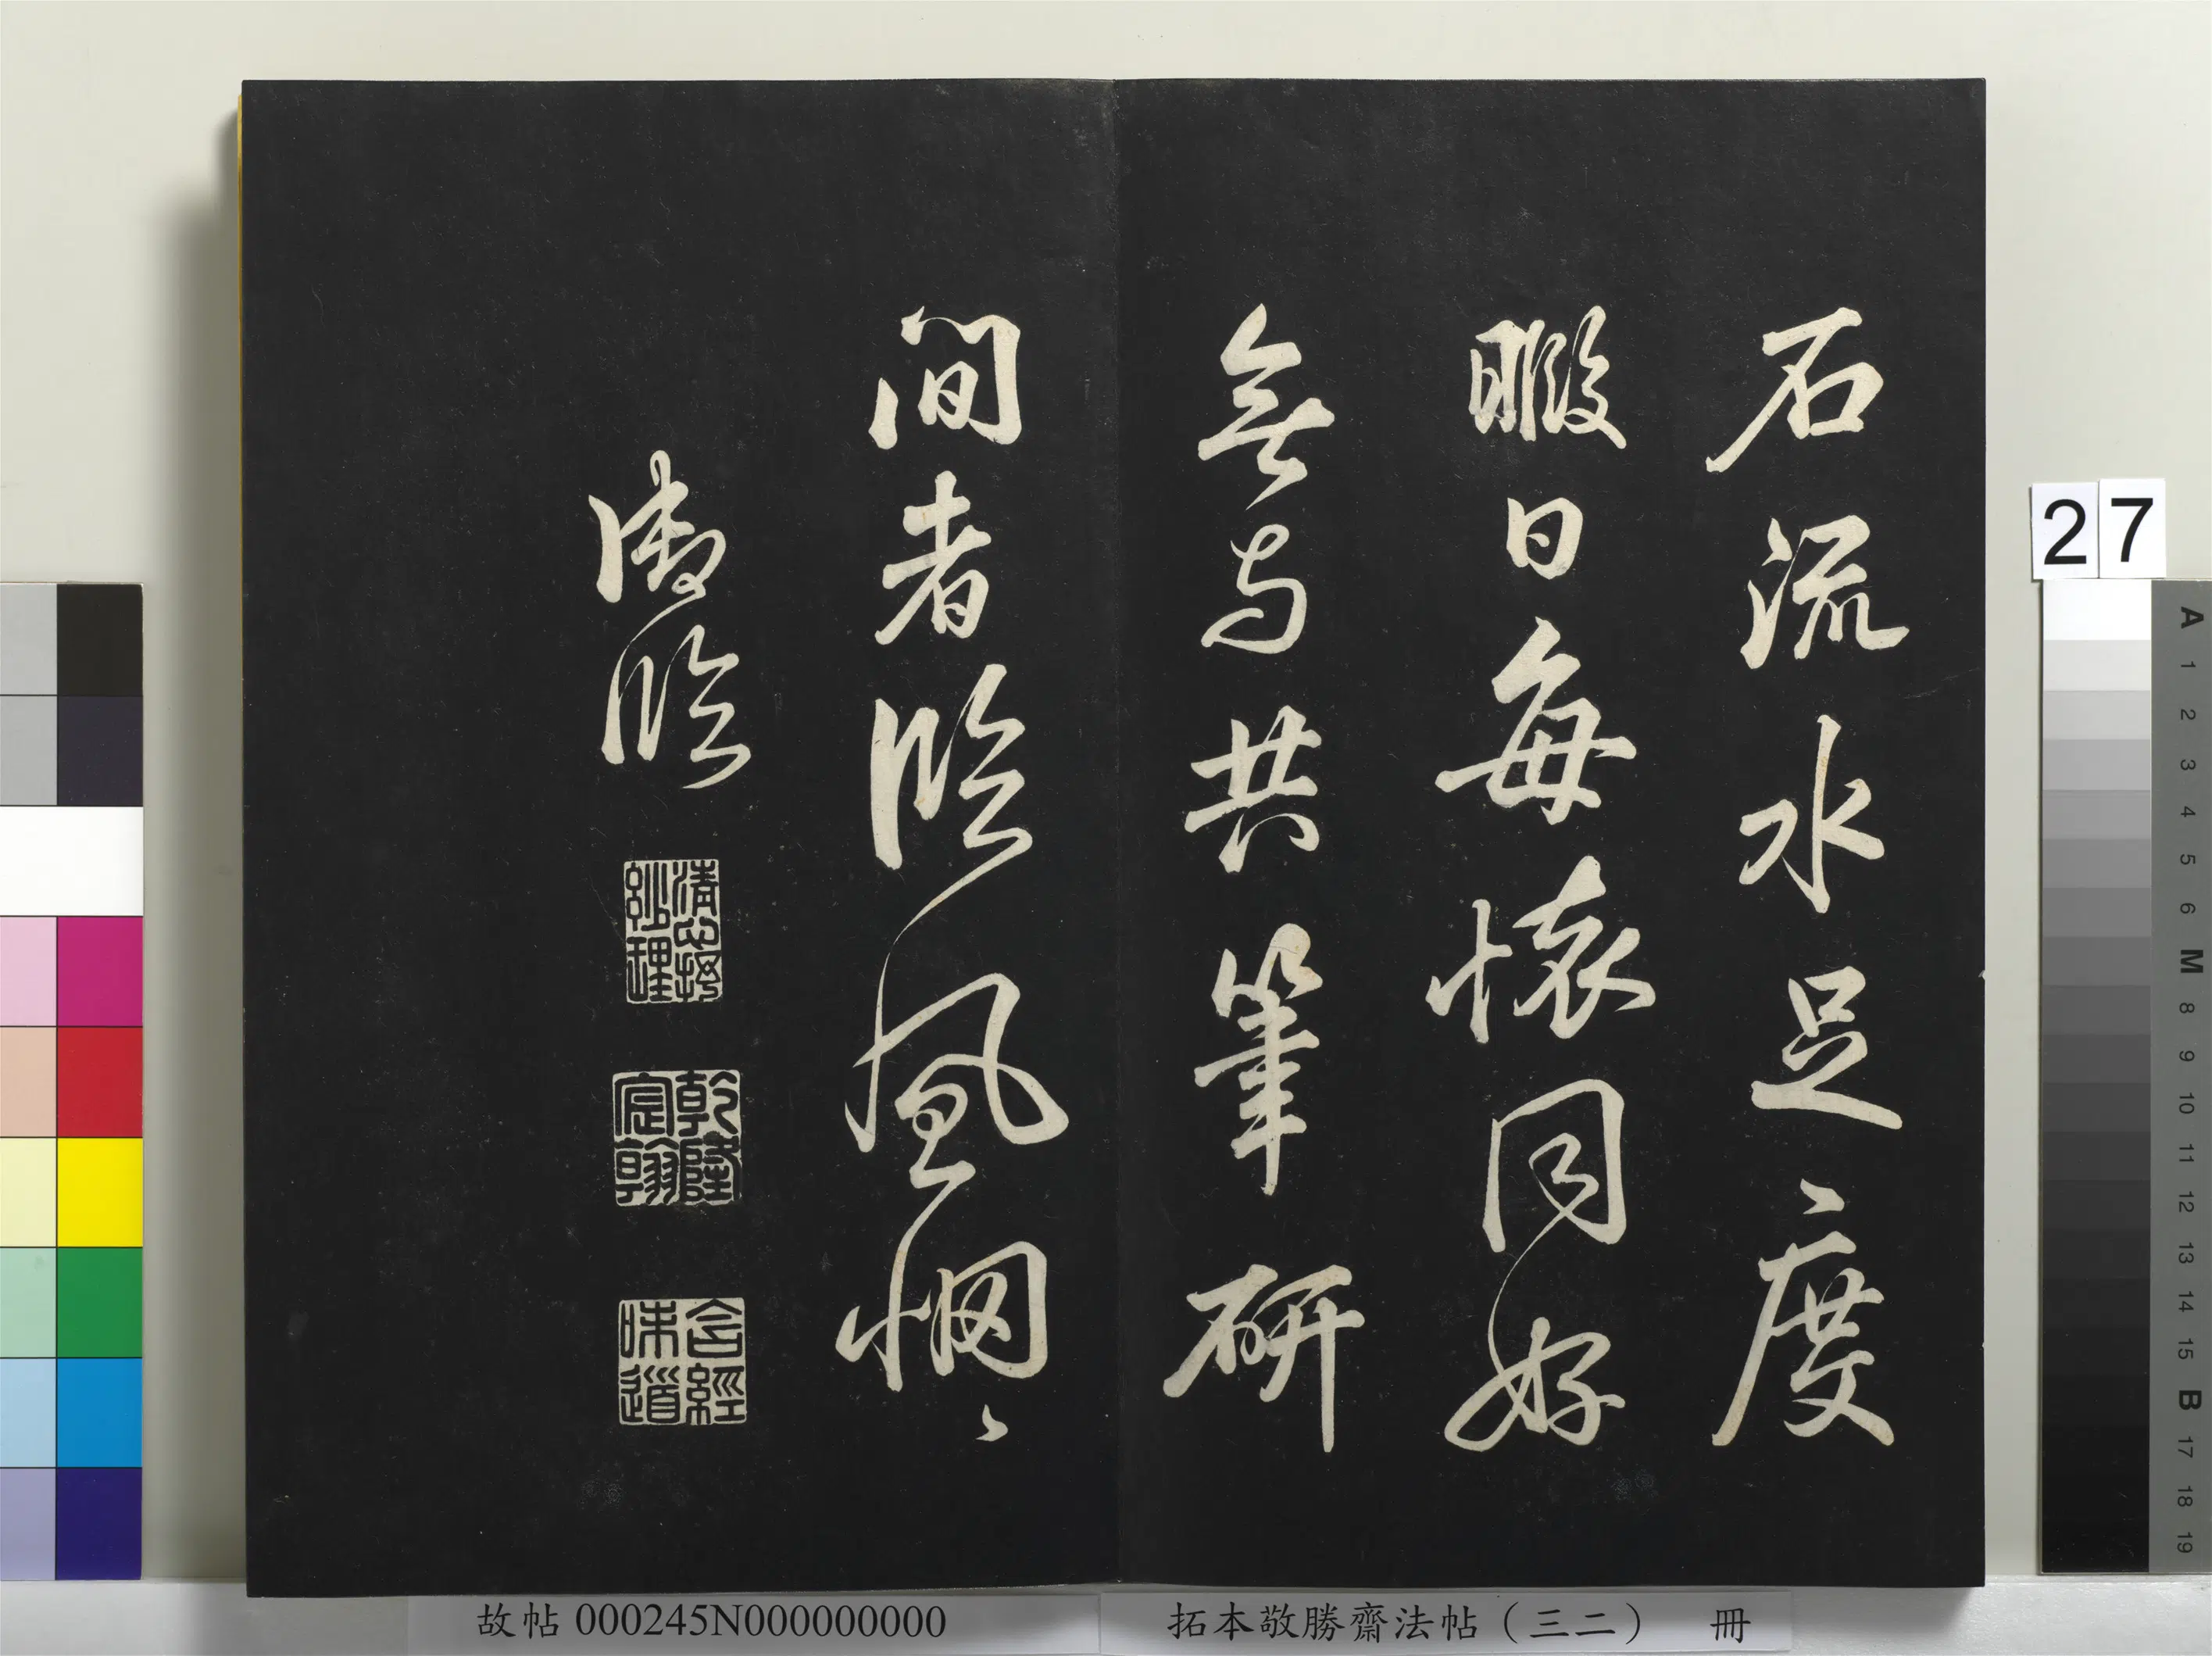 石流水足度
暇日每懷同好
無与共筆研
間者臨風惘〻
御臨
清心抒妙理
乾隆宸翰
含經味道
27
A 1 2 3 4 5 6 M 8 9 10 11 12 13 14 15 B 17 18 19
故帖 000245N000000000
拓本敬勝齋法帖（三二） 冊